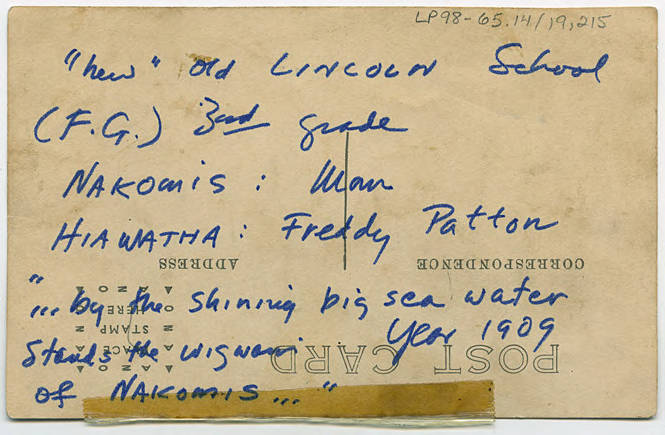 LP98-65.14/19,215
"new" old LINCOLN School
(F.G.) 3rd grade
NAKOMIS: Mom
HIAWATHA: Freddy Patton
CORRESPONDENCE
ADDRESS
"... by the shining big sea water
Stands the wigwam Year 1909
of NAKOMIS..."
POST CARD
AZO
PLACE
STAMP
HERE
AZO